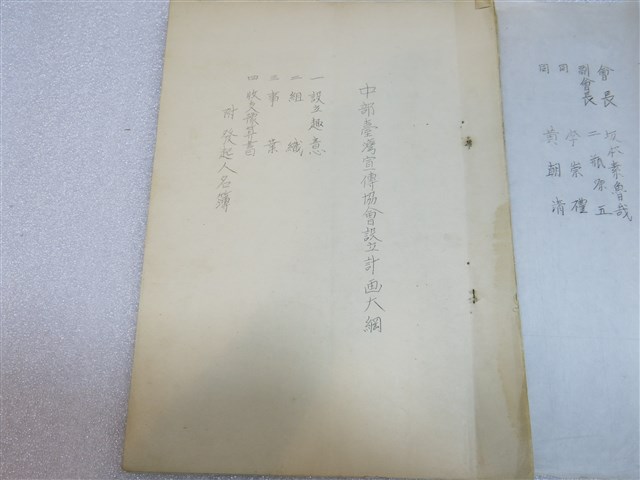 會長 坂本素魯哉
副會長 二瓶源五
同 今榮禮
同 黃朝清
中部臺灣宣傳協會設立計画大綱
一 設立趣意
二 組織
三 事業
四 收支豫算書
附 發起人名簿